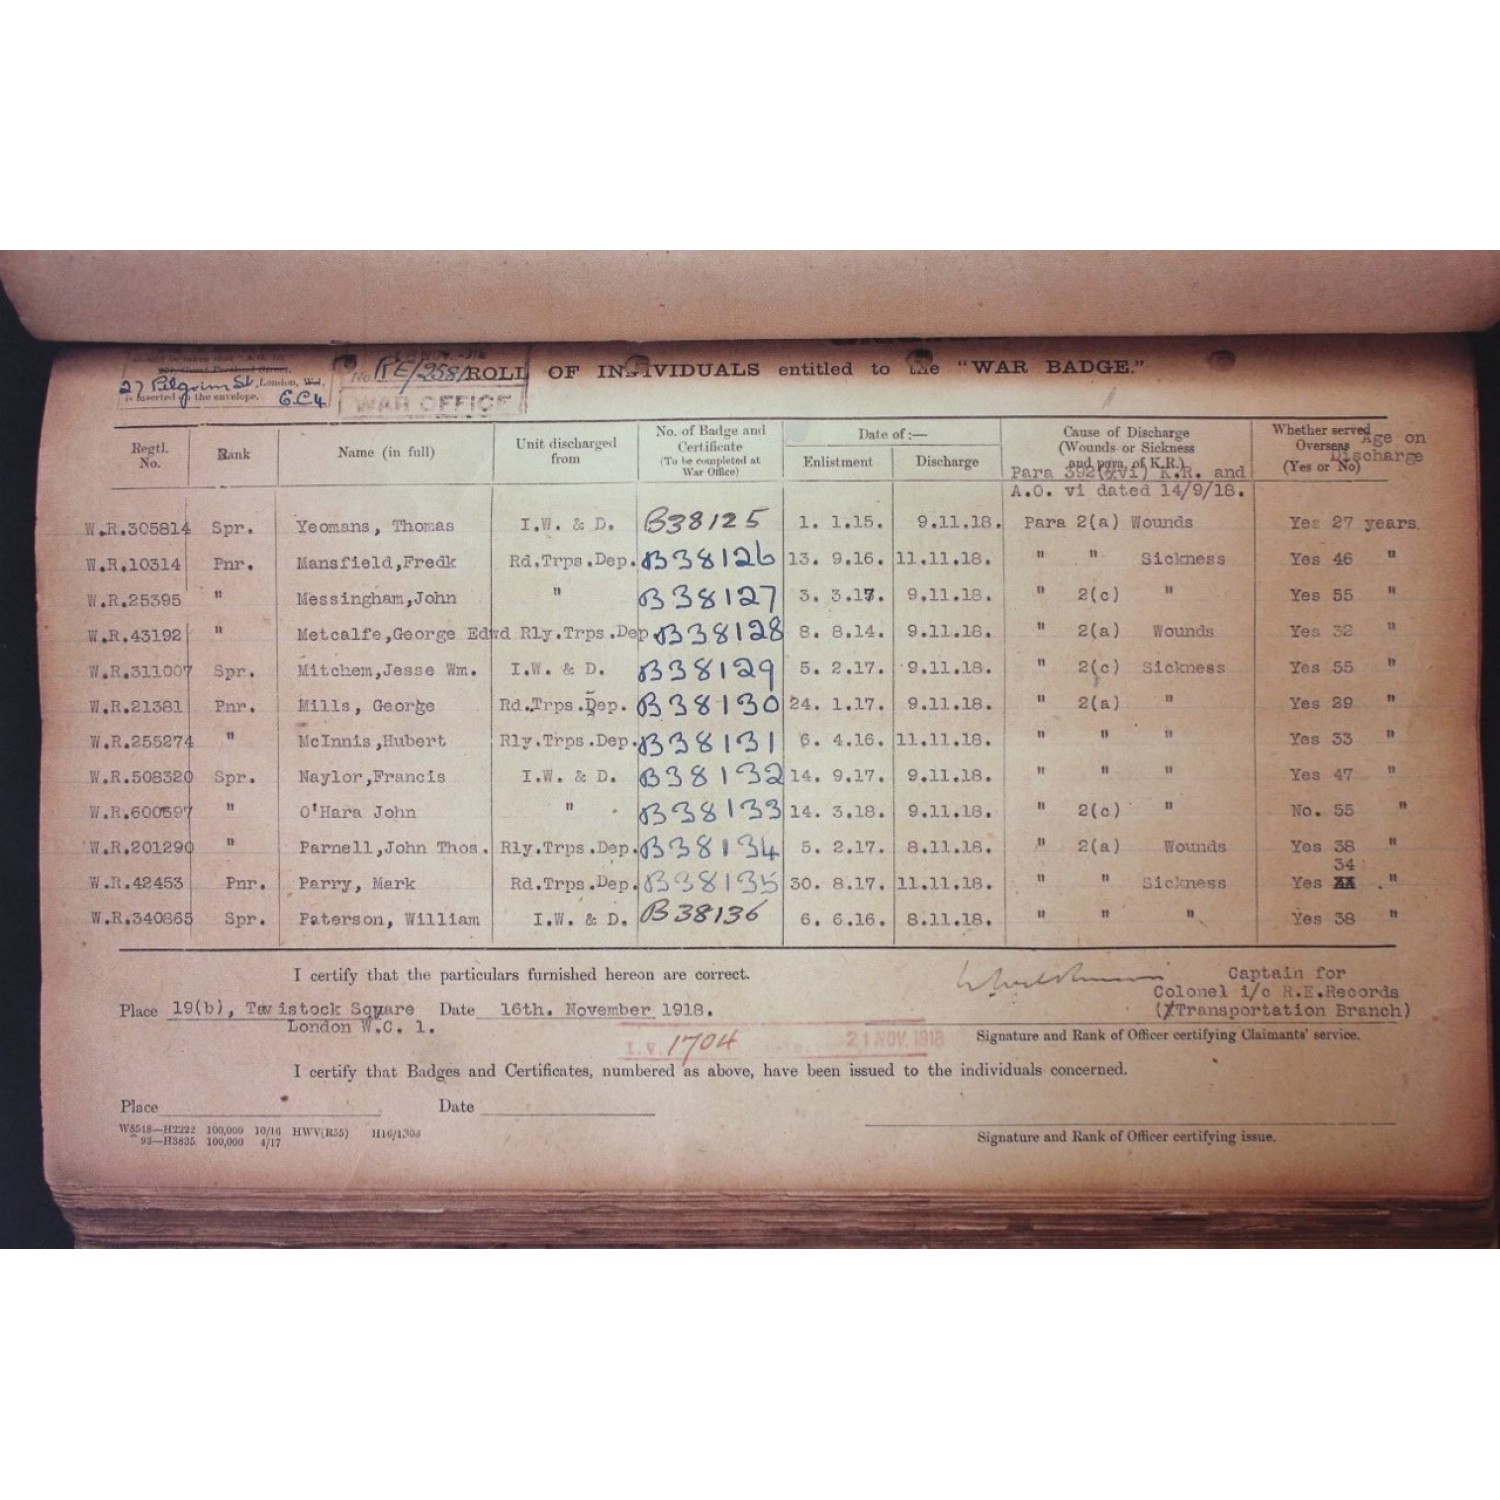 27 Pilgrim St. London,
inserted on the envelope. E.C.4
No. RE/258/
WAR OFFICE
ROLL OF INDIVIDUALS entitled to the "WAR BADGE."
Regtl. No. Rank Name (in full) Unit discharged from No. of Badge and Certificate (To be completed at War Office) Date of :— Enlistment Discharge Cause of Discharge (Wounds or Sickness and para. of K.R.) Whether served Overseas (Yes or No) Age on Discharge
Para 392(xvi) K.R. and
A.O. vi dated 14/9/18.
W.R.305814 Spr. Yeomans, Thomas I.W. & D. B38125 1. 1.15. 9.11.18. Para 2(a) Wounds Yes 27 years.
W.R.10314 Pnr. Mansfield,Fredk Rd.Trps.Dep. B38126 13. 9.16. 11.11.18. " " Sickness Yes 46 "
W.R.25395 " Messingham,John " B38127 3. 3.17. 9.11.18. " 2(c) " Yes 55 "
W.R.43192 " Metcalfe,George Edwd Rly.Trps.Dep B38128 8. 8.14. 9.11.18. " 2(a) Wounds Yes 32 "
W.R.311007 Spr. Mitchem,Jesse Wm. I.W. & D. B38129 5. 2.17. 9.11.18. " 2(c) Sickness Yes 55 "
W.R.21381 Pnr. Mills, George Rd.Trps.Dep. B38130 24. 1.17. 9.11.18. " 2(a) " Yes 29 "
W.R.255274 " McInnis,Hubert Rly.Trps.Dep. B38131 6. 4.16. 11.11.18. " " " Yes 33 "
W.R.508320 Spr. Naylor,Francis I.W. & D. B38132 14. 9.17. 9.11.18. " " " Yes 47 "
W.R.600597 " O'Hara John " B38133 14. 3.18. 9.11.18. " 2(c) " No. 55 "
W.R.201290 " Parnell,John Thos. Rly.Trps.Dep. B38134 5. 2.17. 8.11.18. " 2(a) Wounds Yes 38 "
W.R.42453 Pnr. Parry, Mark Rd.Trps.Dep. B38135 30. 8.17. 11.11.18. " " Sickness Yes 34 "
W.R.340865 Spr. Paterson, William I.W. & D. B38136 6. 6.16. 8.11.18. " " " Yes 38 "
I certify that the particulars furnished hereon are correct.
Captain for
Colonel i/c R.E.Records
(Transportation Branch)
Place 19(b), Tavistock Square Date 16th. November 1918.
London W.C. 1.
Signature and Rank of Officer certifying Claimants' service.
I.V. 1704 21 NOV. 1918
I certify that Badges and Certificates, numbered as above, have been issued to the individuals concerned.
Place Date
W8518—H2222 100,000 10/16 HWV(R55) H16/1306
93—H3835 100,000 4/17
Signature and Rank of Officer certifying issue.